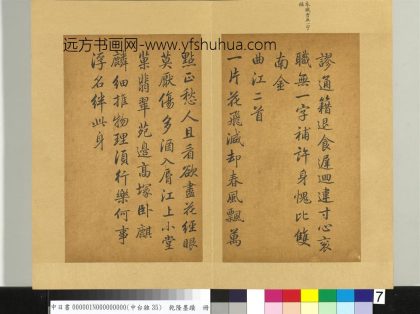 远方书画网- www.yfshuhua.com
謬通籍退食遲迴違寸心衮
職無一字補許身愧比雙
南金
曲江二首
一片花飛減却春風飄萬
點正愁人且看欲盡花經眼
莫厭傷多酒入脣江上小堂
巢翡翠苑邊高塚卧麒
麟細推物理須行樂何事
浮名絆此身
乾隆墨蹟 冊
7